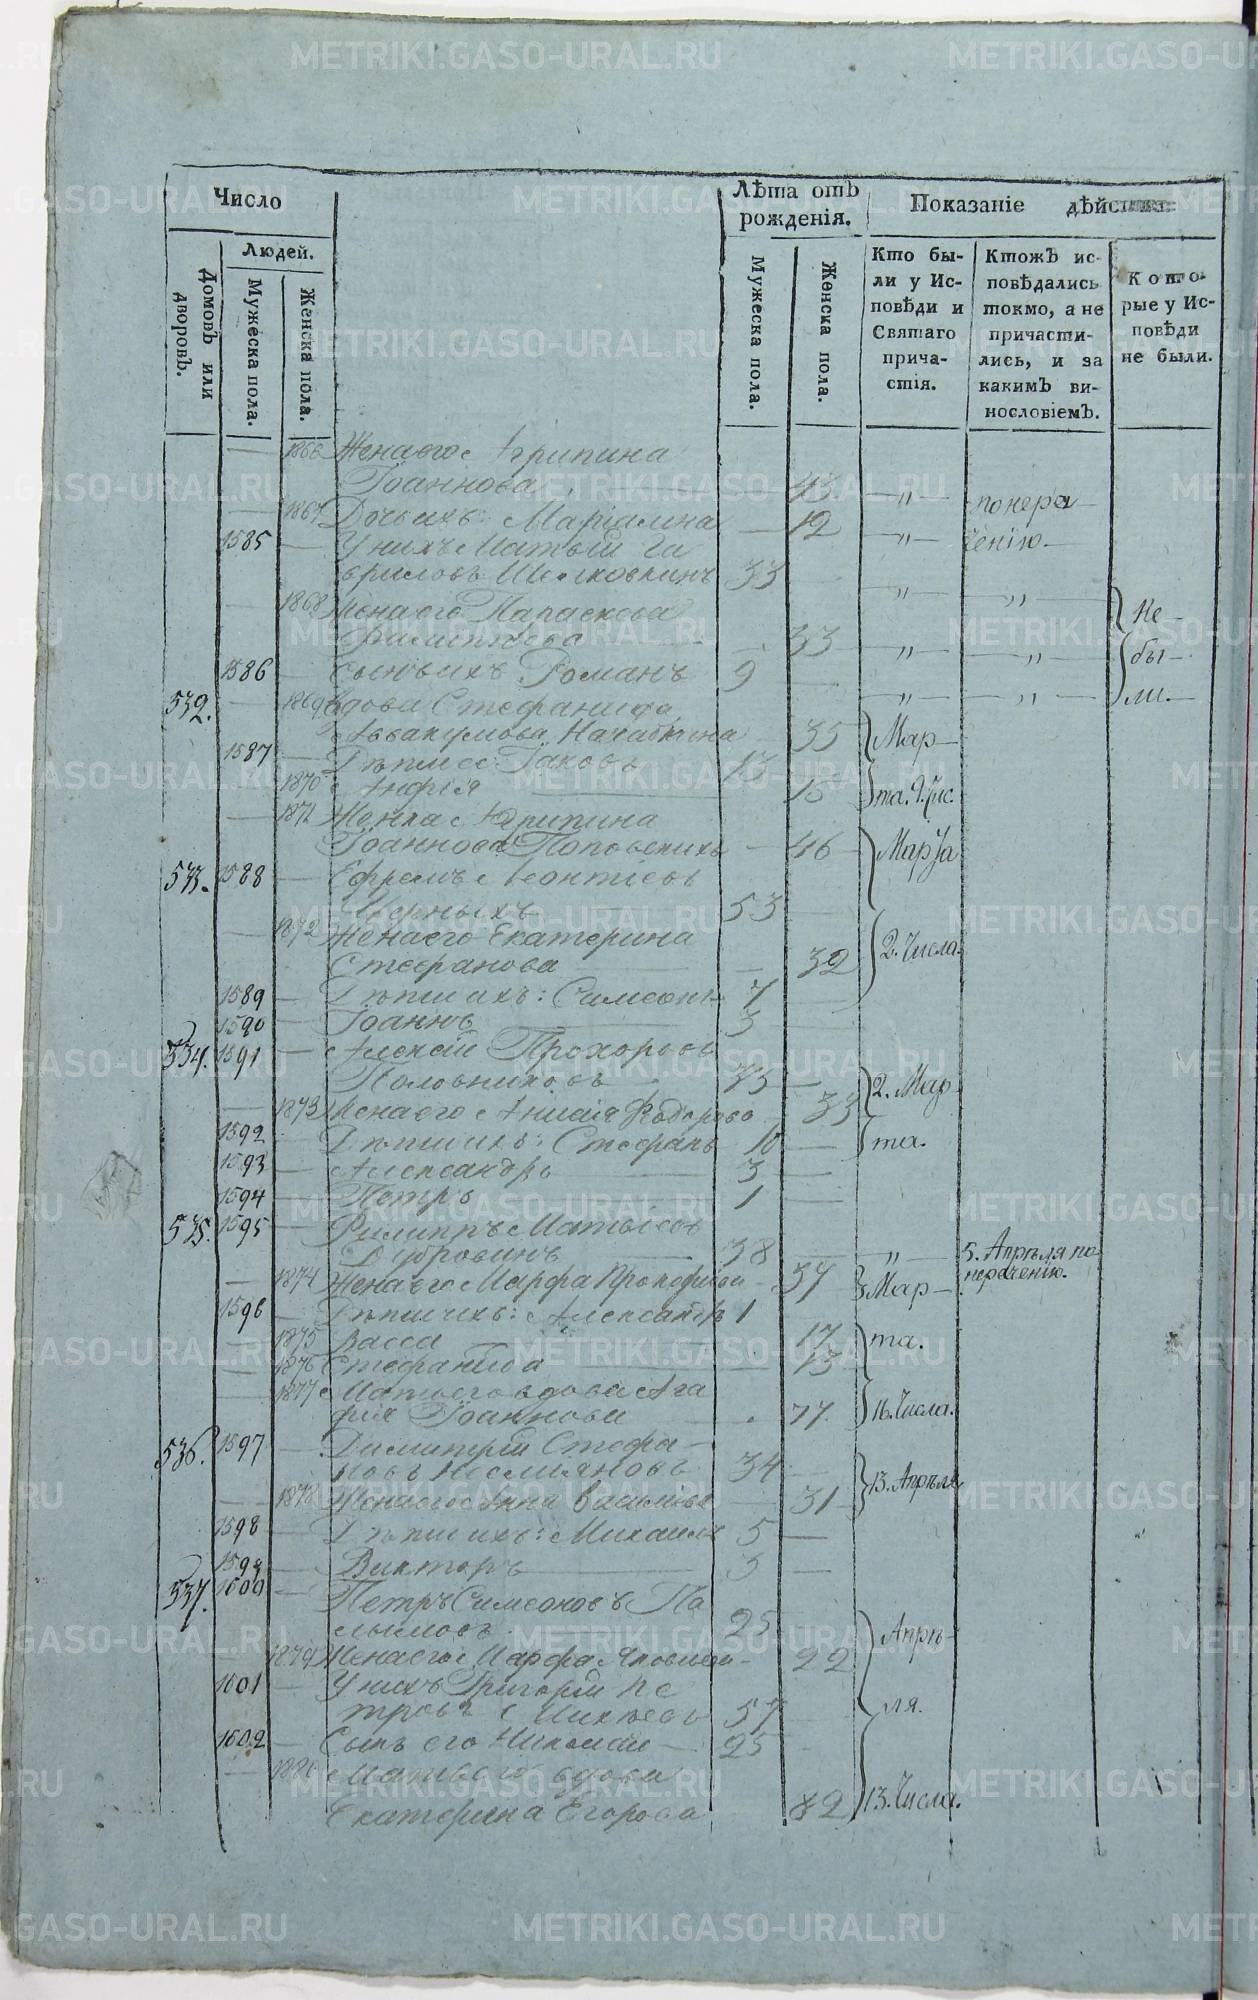 Число
Людей.
Домовъ или дворовъ.
Мужеска пола.
Женска пола.
Лѣта отъ рожденія.
Мужеска пола.
Женска пола.
Показаніе дѣйства
Кто бы-
ли у Ис-
повѣди и
Святаго
прича-
стія.
Ктожъ ис-
повѣдались
токмо, а не
причасти-
лись, и за
какимъ ви-
нословіемъ.
Кото-
рые у Ис-
повѣди
не были.
— 1866 Жена его Агрипина
Іоаннова — 43 — „ — понера
— 1867 Дочь ихъ — 12 — „ — ченію —
1585 — У нихъ
33 — „ — „ —
— 1868 Жена его Параскева
Филиппова — 33 — „ — „ — Не
1586 — Сынъ ихъ Романъ 9 — „ — „ — бы
ли.
532. — 1869 Вдова Стефанида
Аввакумова 35 Мар
1587 — Дѣти ее: Іаковъ 13
1870 Анфія 15 та. 9. Чис.
— 1871 Женка Агрипина
Іоаннова Поповскихъ — 46 Марта
533. 1588 — Ефремъ Леонтіевъ
Черныхъ 53 —
— 1872 Жена его Екатерина
Стефанова — 32 2. Числа.
1589 — Дѣти ихъ: Симеонъ 7 —
1590 — Іоаннъ 3 —
534. 1591 — Алексій Прохоровъ
Половниковъ — 2. Мар
— 1873 Жена его Анисія Федорова — 33
1592 — Дѣти ихъ: Стефанъ 10 — та.
1593 — Александръ 3 —
1594 — Петръ 1 —
535. 1595 — Филиппъ Матвѣевъ
Дубровинъ 38 — „ — 5. Апрѣля по
нерачению.
— 1874 Жена его Марфа Прокофіева — 37 Мар
1596 — Дѣти ихъ: Александръ 1
— 1875 Васса — 17 та.
— 1876 Стефанида — 13
— 1877 Мать его вдова Ага
фія Іоаннова 77. 16. Числа.
536. 1597 — Димитрій Стефа-
новъ Несміяновъ 34 — 13. Апрѣля
— 1878 Жена его Анна Васильева 31
1598 — Дѣти ихъ: Михаилъ 5 —
1599 — Викторъ 3 —
537. 1600 — Петръ Симеоновъ Па
25 Апрѣ-
— 1879 Жена его Марфа Яковлева — 22
1601 — У нихъ Григорій Пе
тровъ 57 ля.
1602 — Сынъ его Николай — 25
— 1880 Мать его вдова
Екатерина Егорова 82 13. Числа.
METRIKI.GASO-URAL.RU